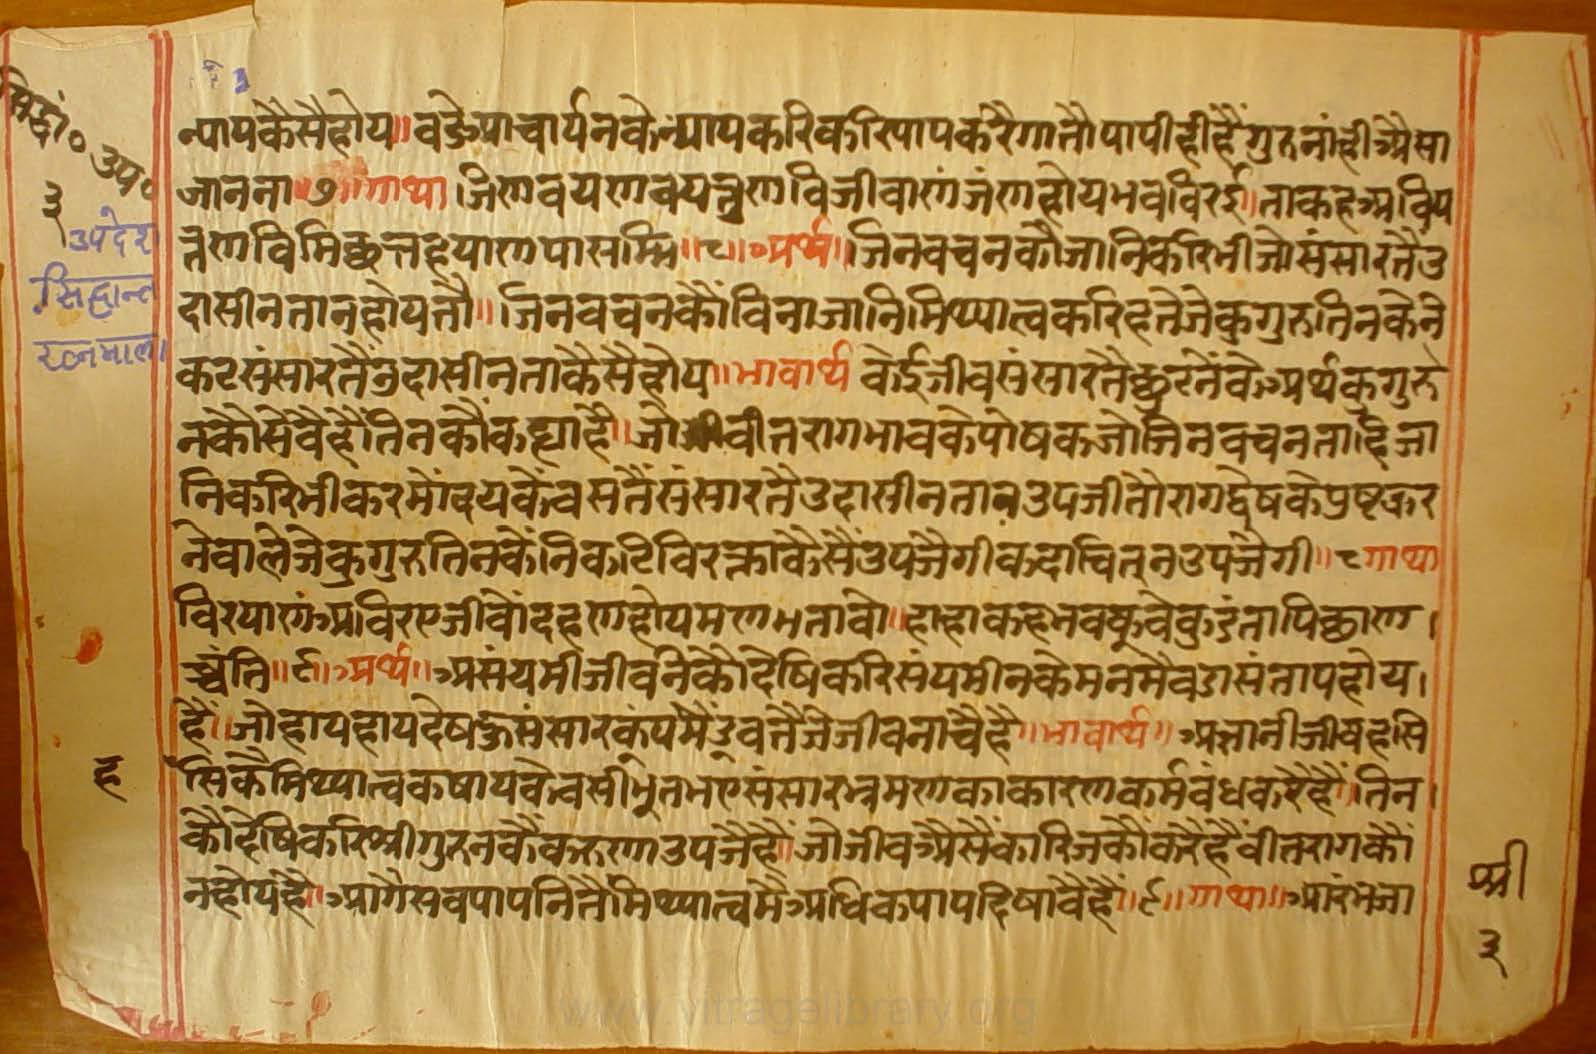 सिद्धां० उप०
३
उपदेश
सिद्धान्त
रत्नमाला
न्यायकैसैहोय॥ वडेआचार्यनकेन्यायकरिकरिपापकरैगातौपापीहीहैंगुरुनांहीऐसा
जानना॥७॥ गाथा जिणवयणवयन्नुणविजीवाणंजंणहोयभवविरई।ताकहअविय
न्नुणविमिछत्तहयाणपासम्मि॥८॥अर्थ॥जिनवचनकौजानिकरिभीजोसंसारतैउ
दासीनतानहोयतौ॥ जिनवचनकौंविनाजानिमिथ्यात्वकरिहतेजेकुगुरुतिनकेनि
कटसंसारतैउदासीनताकैसैहोय॥भावार्थ केईजीवसंसारतैछूटनेंकेअर्थकुगुरु
नकौसेवैहैंतिनकौंकह्याहै॥जौवीतरागभावकेपोषकजोजिनवचनताहिजा
निकरिभीकरमोंदयकेंवसतैंसंसारतैउदासीनतानउपजीतौरागद्वेषकेपुष्टकर
नेवालेजेकुगुरुतिनकेंनिकटिविरक्तताकैसैंउपजैगीकदाचित्नउपजैगी॥८गाथा
विरयाणंअविरएजीवेदहूणहोयमणभतावो॥हाहाकहभवकूवेवुडंतापिछाण।
च्चंति॥९॥अर्थ॥असंयमीजीवनिकौदेषिकरिसंयमीनकेमनमैवडासंतापहोय।
हैं॥जोहायहायदेषऊसंसारकूपमैंडूवतैजेजीवनाचैहै॥भावार्थ॥अज्ञानीजीवहसि
हसिकैमिथ्यात्वकषायकेवसीभूतभएसंसारभ्रमणकाकारणकर्मबंधकरैहैं॥तिन।
कौदेषिकरिश्रीगुरुनकैंकरुणाउपजैहै॥जोजीवऐसैंकारिजकौंकरैहैंवीतरागकौं
नहोयहै॥आगैसवपापनितैंमिथ्यात्वमैअधिकपापदिषावैहैं॥९॥गाथा॥आरंभजा
श्री
३
www.vitragelibrary.org